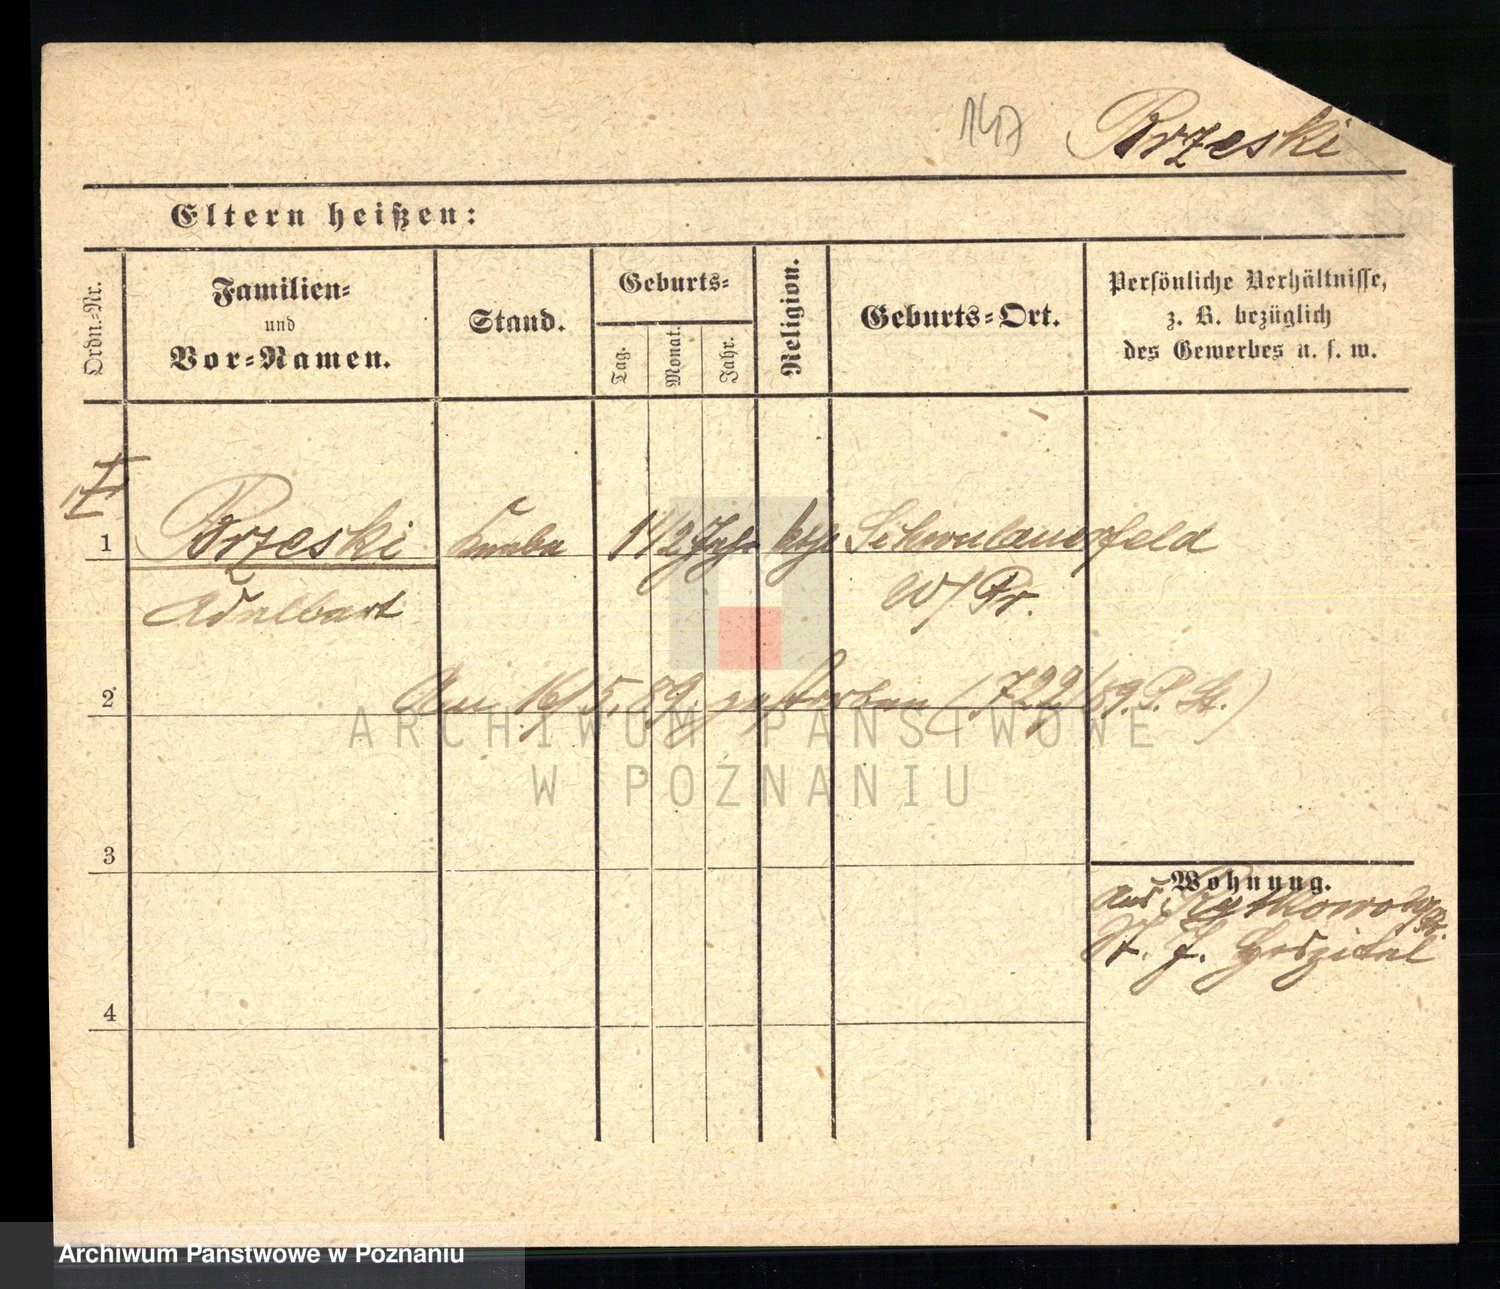 147 Brzeski
Eltern heißen:
Ordn.-Nr.
Familien-
und
Vor-Namen.
Stand.
Geburts-
Tag.
Monat.
Jahr.
Religion.
Geburts-Ort.
Persönliche Verhältnisse,
z. B. bezüglich
des Gewerbes u. s. w.
1 Brzeski Knabe 1 1/2 Jahr kth
Adalbert W/Pr.
2 Am 16/5. 89. gestorben (722/89. P. St.)
ARCHIWUM PAŃSTWOWE
W POZNANIU
3
Wohnung.
aus
St. J. Hospital
4
Archiwum Państwowe w Poznaniu